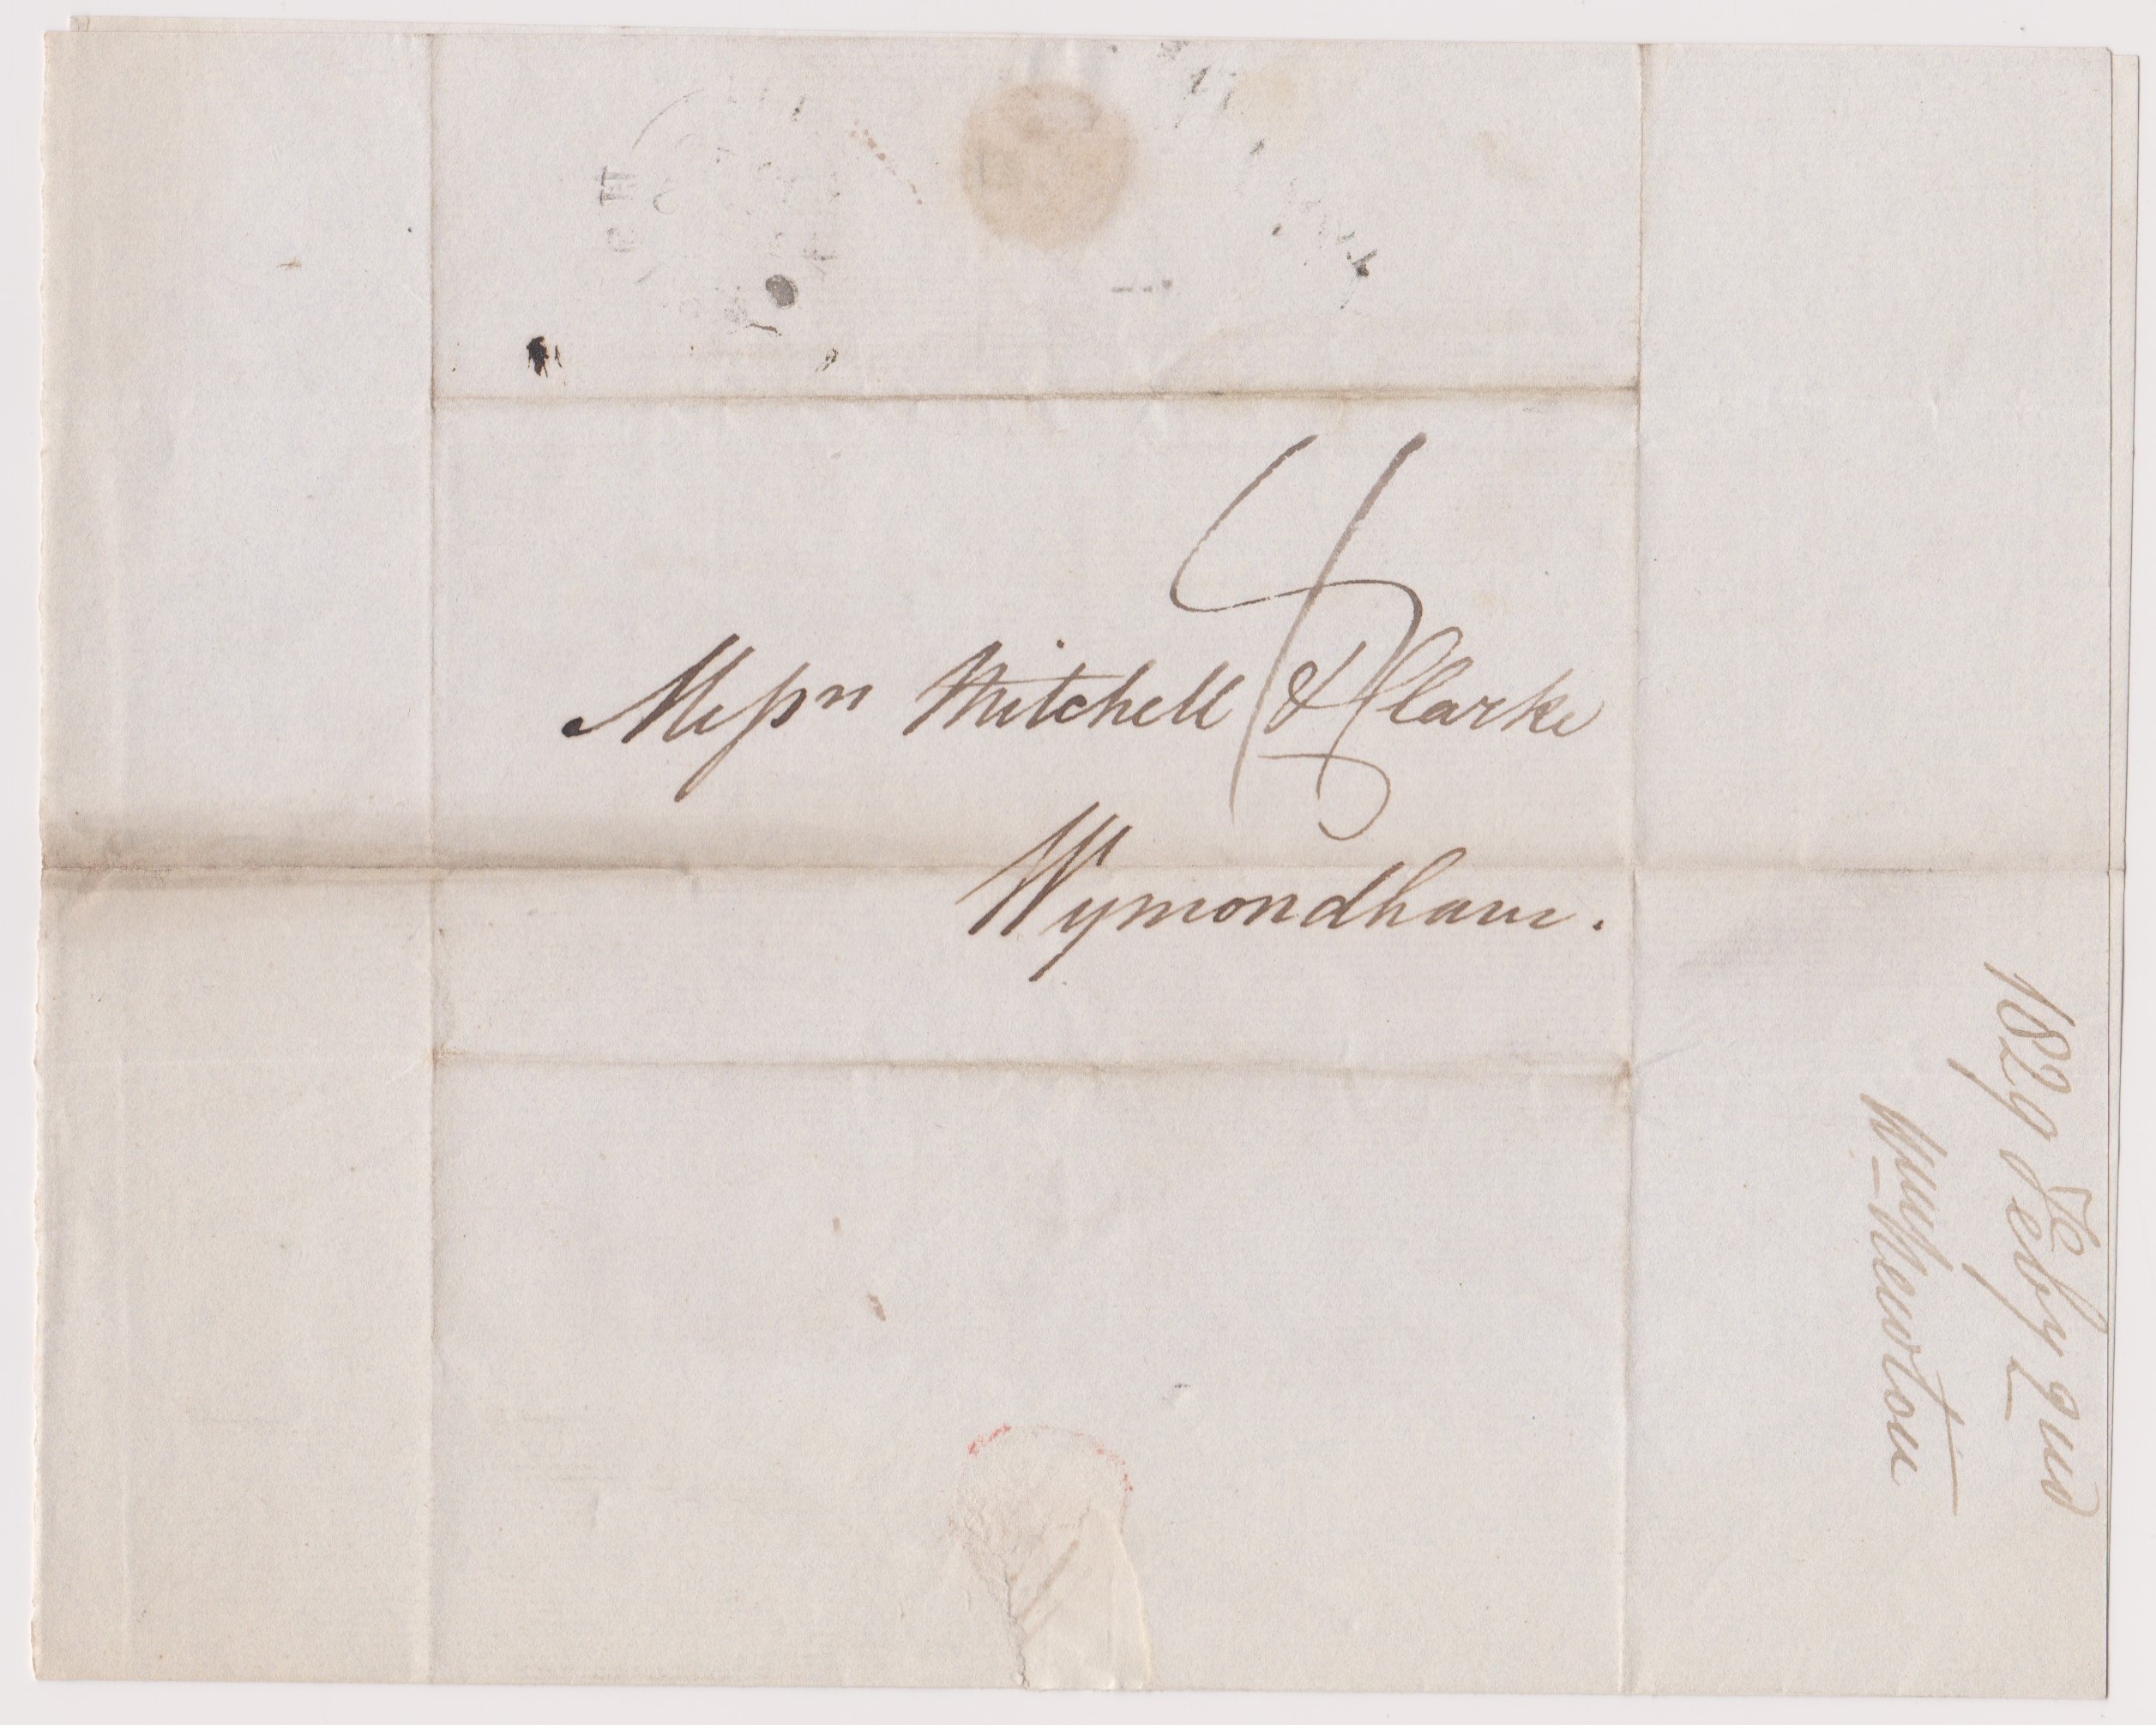 4
Messrs Mitchell & Clarke
Wymondham.
1829 Feby 2nd
Newton